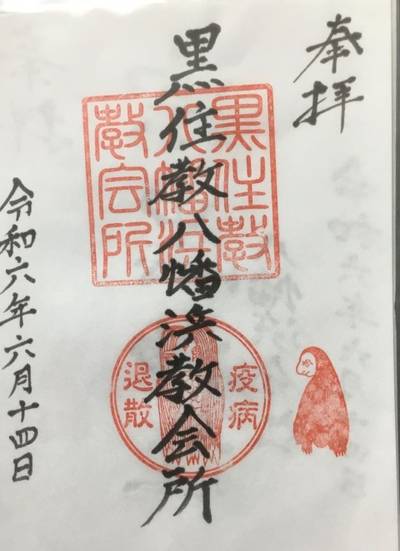 奉拝
黒住教八幡浜教会所
黒住教
八幡浜
教会所
疫病
退散
令和六年六月十四日